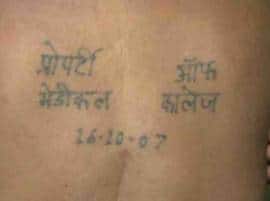 प्रोपर्टी ऑफ
मेडीकल कालेज
16-10-07